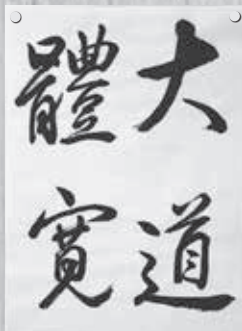 大道
體寬